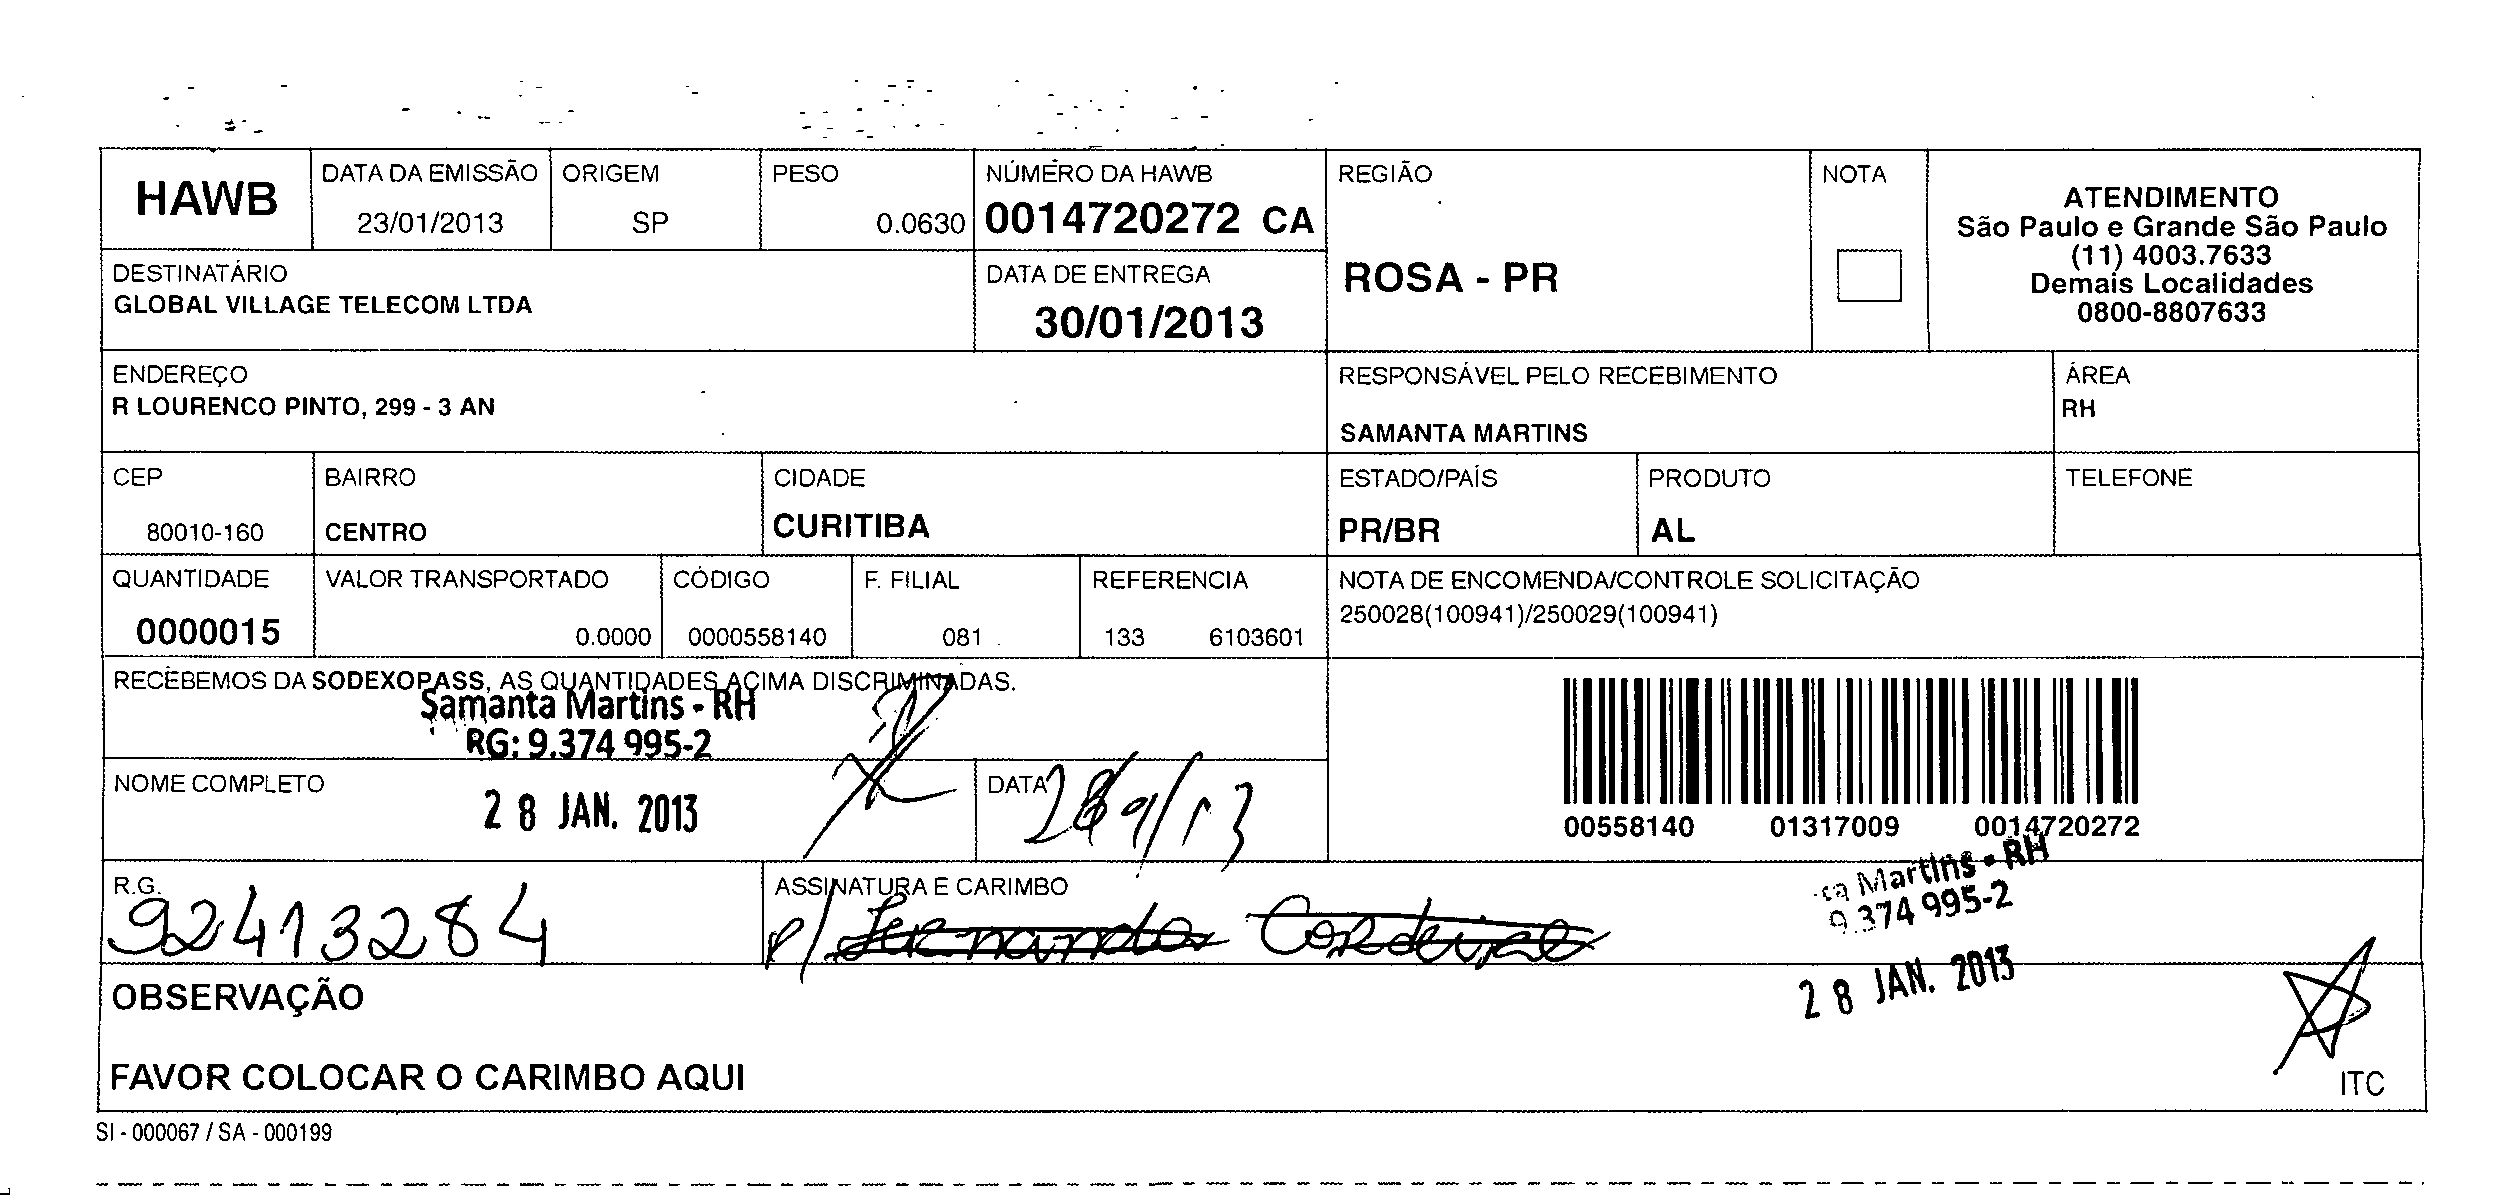 HAWB
DATA DA EMISSÃO
23/01/2013
ORIGEM
SP
PESO
0.0630
NÚMERO DA HAWB
0014720272 CA
REGIÃO
ROSA - PR
NOTA
ATENDIMENTO
São Paulo e Grande São Paulo
(11) 4003.7633
Demais Localidades
0800-8807633
DESTINATÁRIO
GLOBAL VILLAGE TELECOM LTDA
DATA DE ENTREGA
30/01/2013
ENDEREÇO
R LOURENCO PINTO, 299 - 3 AN
RESPONSÁVEL PELO RECEBIMENTO
SAMANTA MARTINS
ÁREA
RH
CEP
80010-160
BAIRRO
CENTRO
CIDADE
CURITIBA
ESTADO/PAÍS
PR/BR
PRODUTO
AL
TELEFONE
QUANTIDADE
0000015
VALOR TRANSPORTADO
0.0000
CÓDIGO
0000558140
F. FILIAL
081
REFERENCIA
133 6103601
NOTA DE ENCOMENDA/CONTROLE SOLICITAÇÃO
250028(100941)/250029(100941)
RECEBEMOS DA SODEXOPASS, AS QUANTIDADES ACIMA DISCRIMINADAS.
Samanta Martins - RH
RG: 9.374 995-2
NOME COMPLETO
28 JAN. 2013
DATA
00558140 01317009 0014720272
R.G.
92413284
ASSINATURA E CARIMBO
p/ Cordeiro
Martins - RH
9.374 995-2
28 JAN. 2013
OBSERVAÇÃO
FAVOR COLOCAR O CARIMBO AQUI
ITC
SI - 000067 / SA - 000199